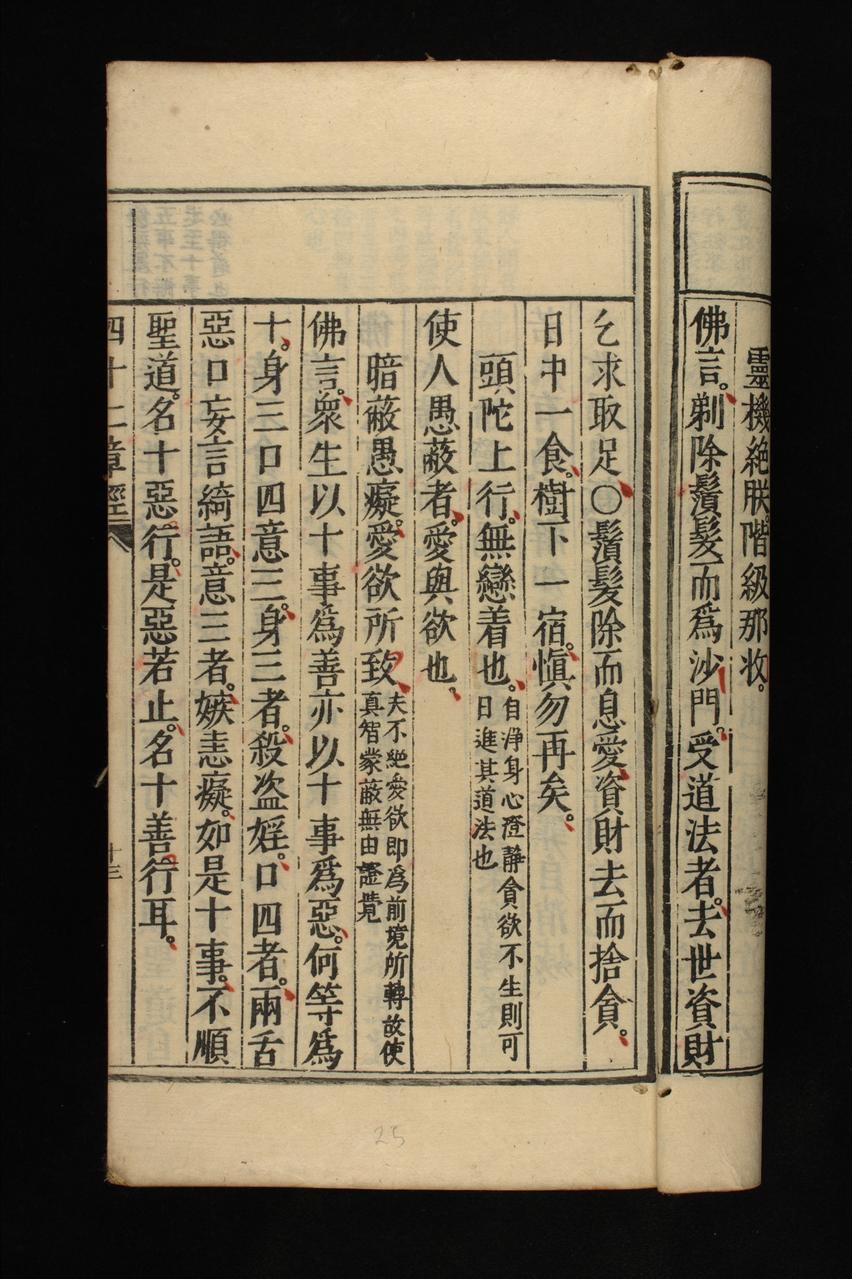 靈機絶朕。階級那收。
佛言。剃除鬚髮而爲沙門。受道法者。去世資財
乞求取足○鬚髮除而息愛資財去而捨貪。
日中一食。樹下一宿。愼勿再矣。
頭陀上行。無戀着也。自淨身心澄靜貪欲不生則可
日進其道法也
使人愚蔽者。愛與欲也。
暗蔽愚癡。愛欲所致夫不絶愛欲即爲前境所轉故使
真智蒙蔽無由證覺
佛言。衆生以十事爲善亦以十事爲惡。何等爲
十。身三口四意三。身三者。殺盗婬。口四者。兩舌
惡口妄言綺語。意三者。嫉恚癡。如是十事。不順
聖道。名十惡行。是惡若止。名十善行耳。
四十二章經
十三
25